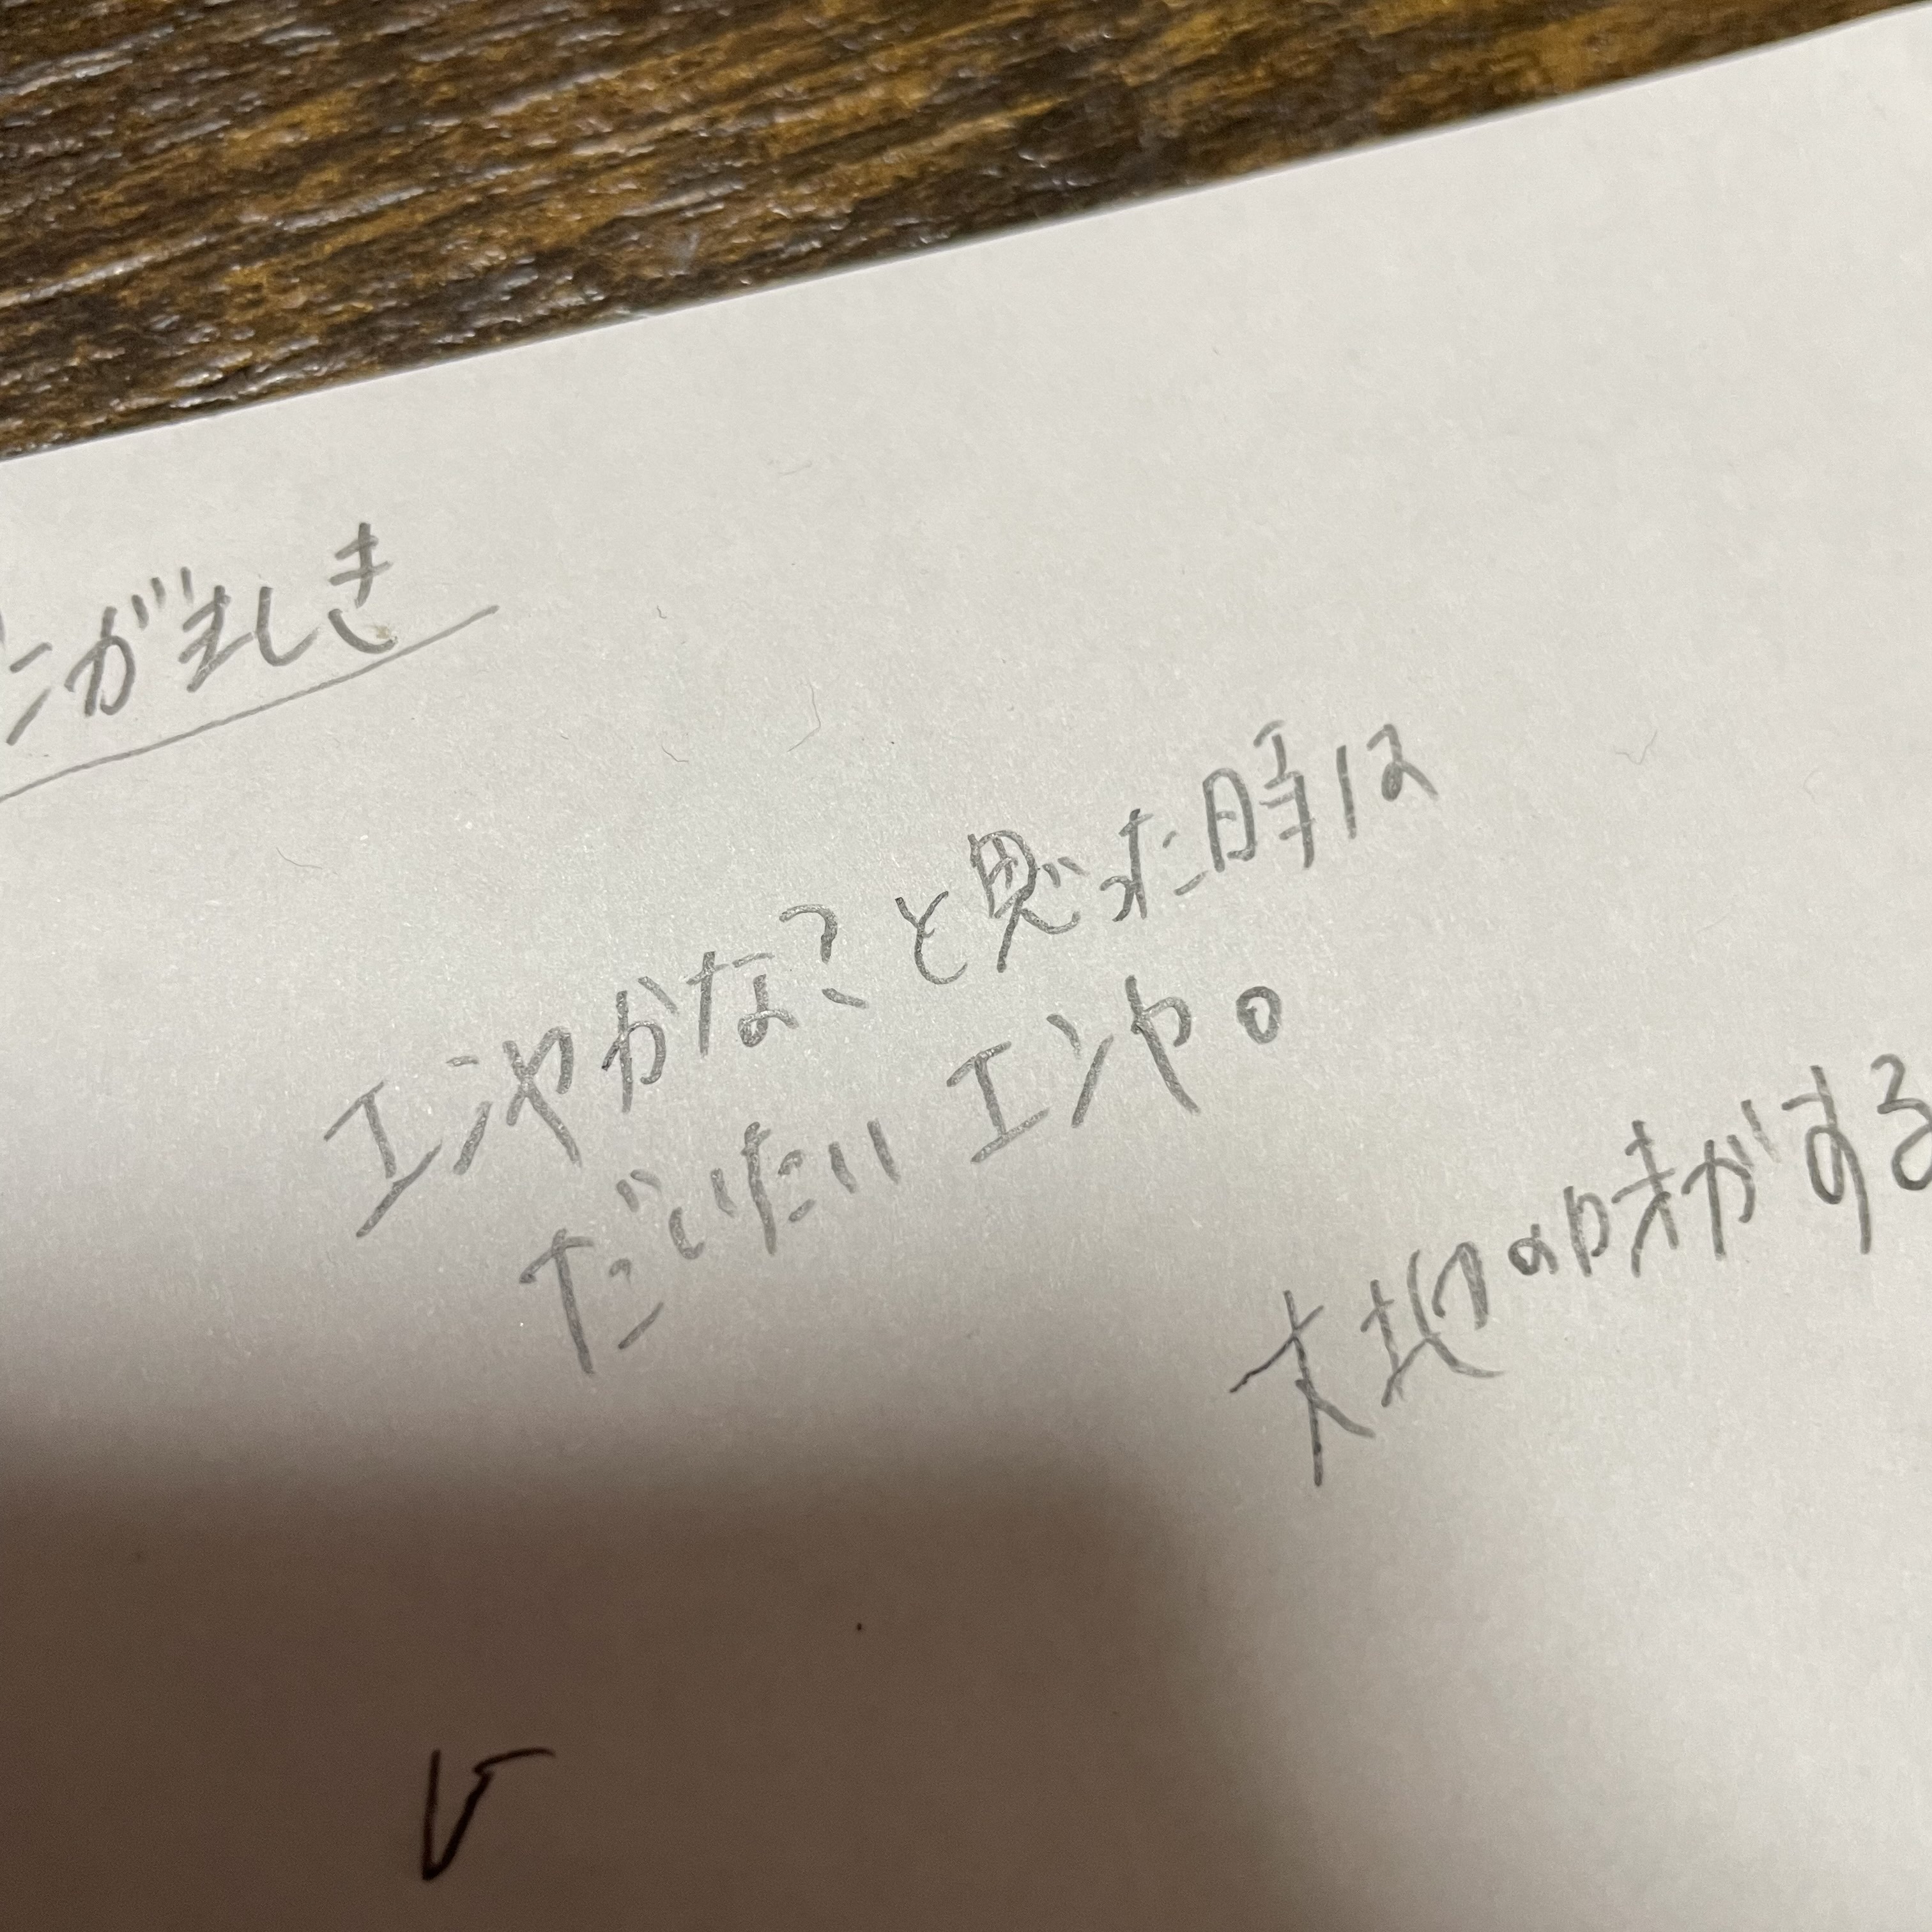 がましき
エンヤかな?と思った時は
だいたいエンヤ。
大地の味がする